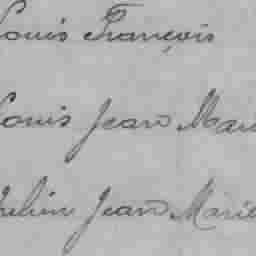 Louis François
Louis Jean Marie
Julien Jean Marie